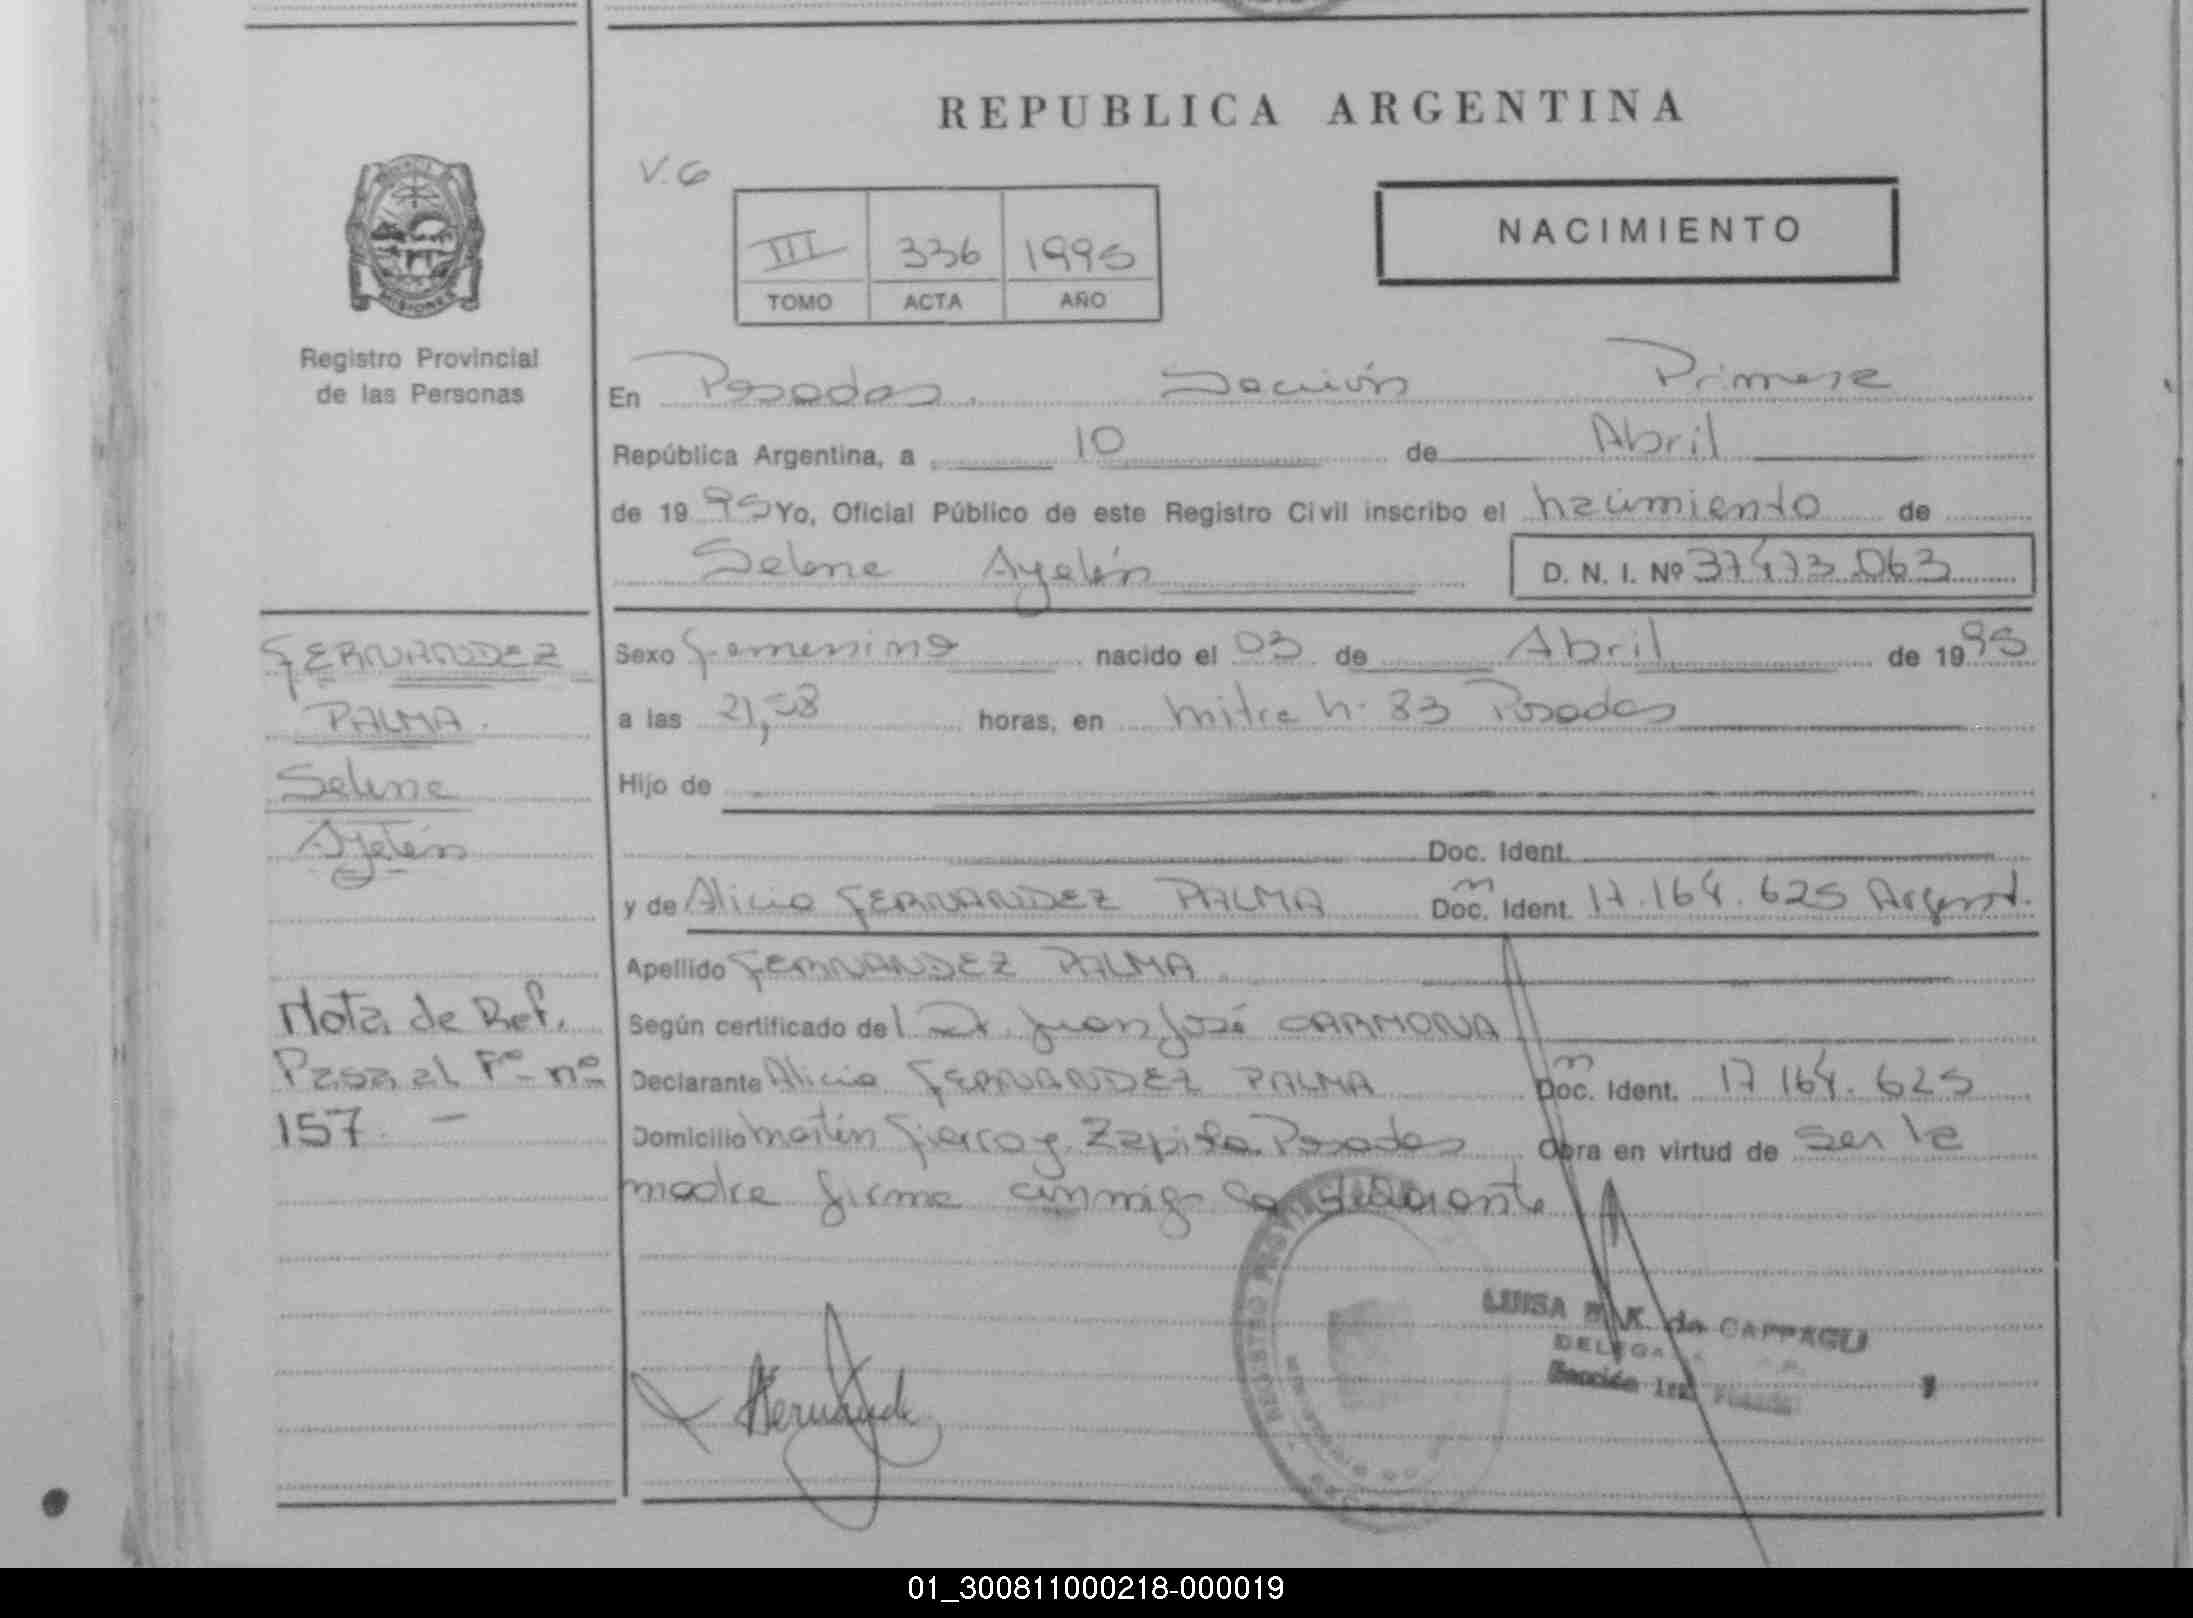 REPUBLICA ARGENTINA
V. G
III 336 1995
TOMO ACTA AÑO
NACIMIENTO
MISIONES
Registro Provincial
de las Personas
En Posadas. Sección Primera
República Argentina, a 10 de Abril
de 1995 Yo, Oficial Público de este Registro Civil inscribo el nacimiento de
Selene Ayelén D. N. I. Nº 37473.063
FERNANDEZ
PALMA.
Selene
Ayelén
Sexo femenino nacido el 03 de Abril de 1995
a las 21,58 horas, en Mitre n. 83 Posadas
Hijo de
Doc. Ident.
y de Alicia FERNANDEZ PALMA Doc. Ident. 17.164.625 Argent.
Apellido FERNANDEZ PALMA
Según certificado del Dr. Juan José CARMONA
Declarante Alicia FERNANDEZ PALMA Doc. Ident. 17 164.625
Domicilio Martín Fierro y Posadas Obra en virtud de ser la
madre firma conmigo
Nota de Ref.
Pasa al Fº nº
157. -
REGISTRO
LUISA K. de CAPPAGLI
DELEGA
Sección 1ra.
Fernande
01_300811000218-000019